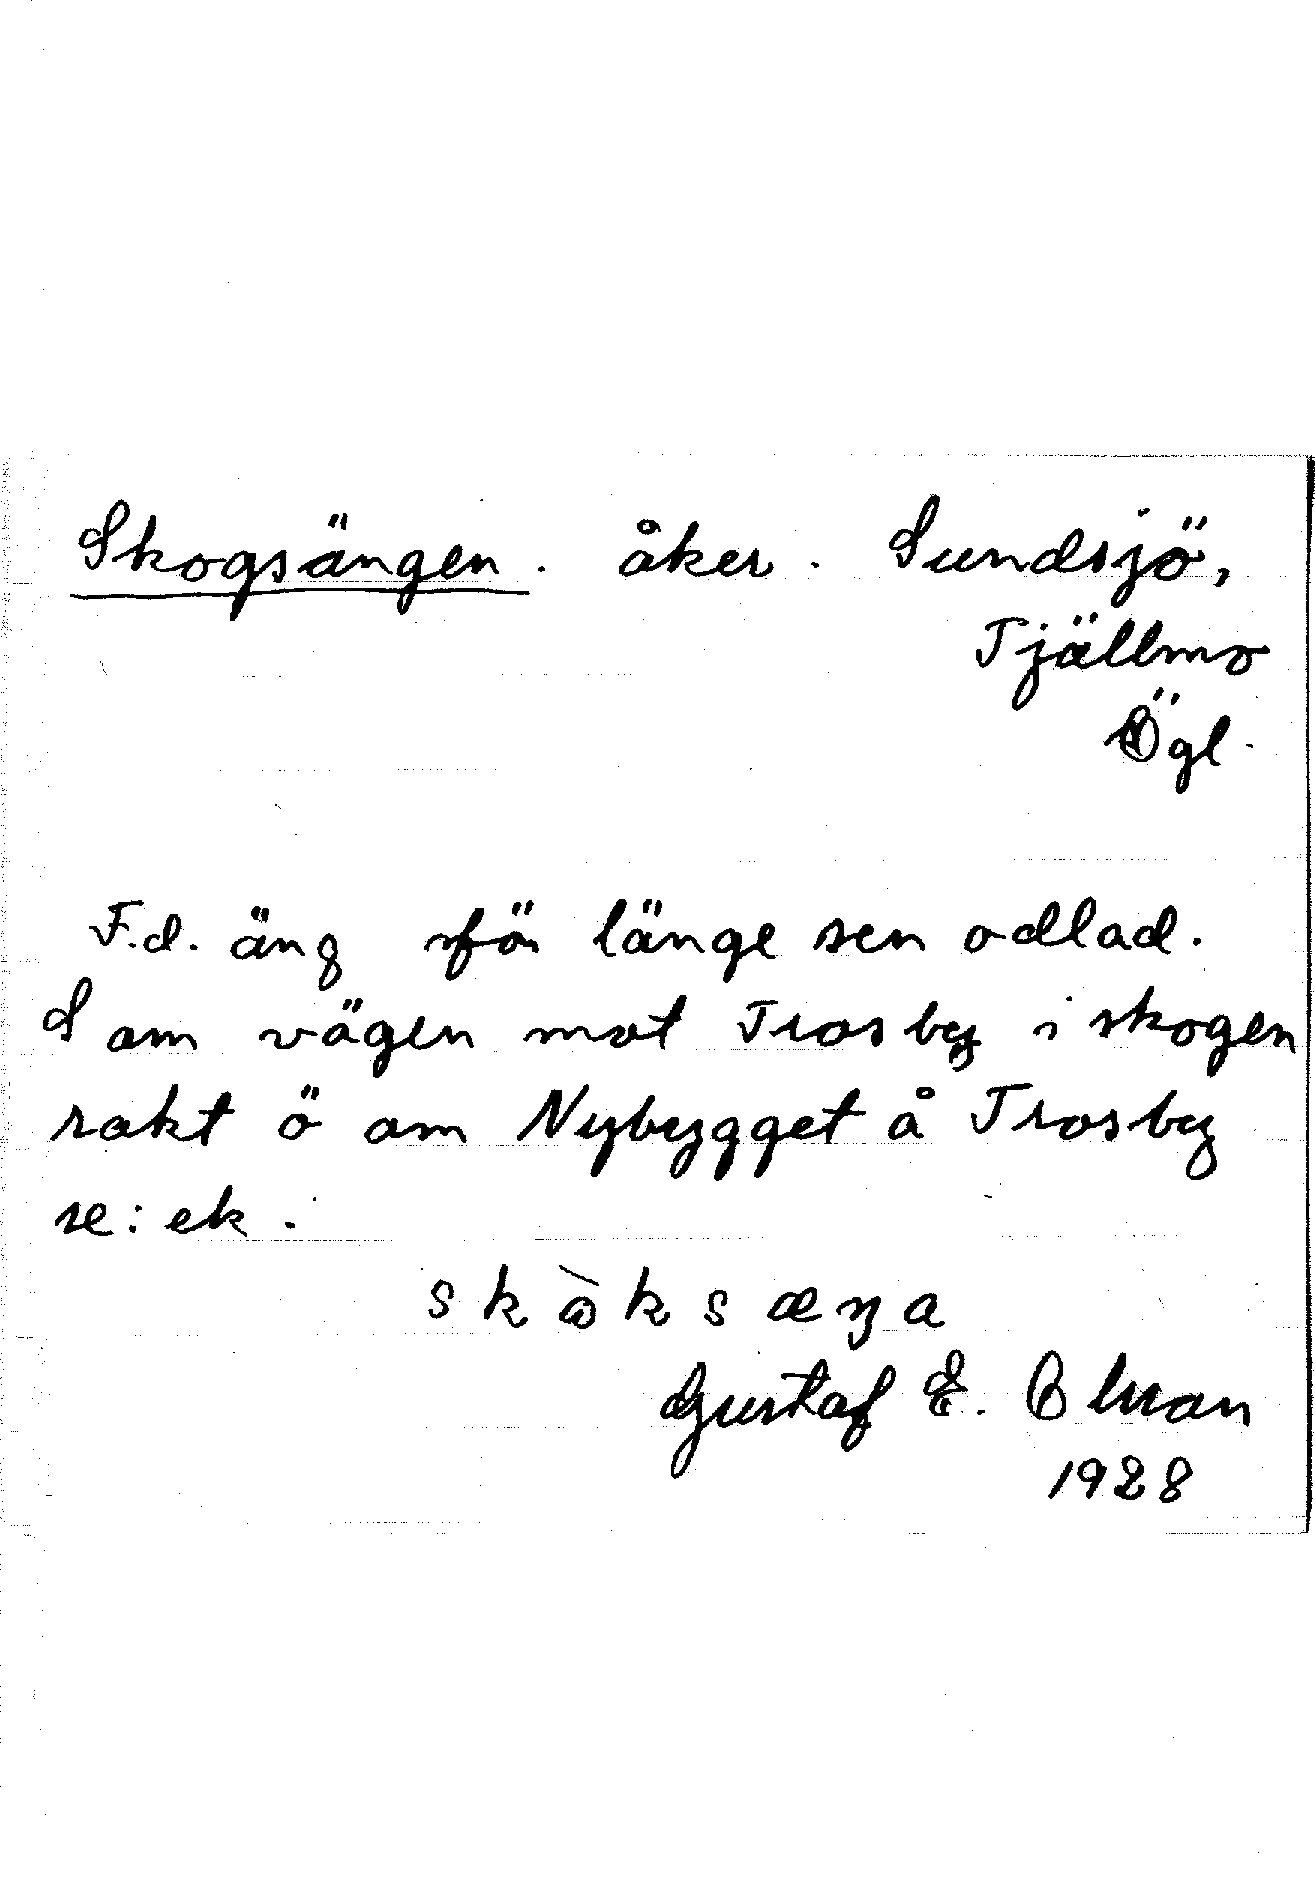 Skogsängen. åker. Sundsjö,
Tjällmo
Ögl.
F.d. äng för länge sen odlad.
S om vägen mot Trosby i skogen
rakt ö om Nybygget å Trosby
se: ek.
skòksæŋa
Gustaf E. Olman
1928